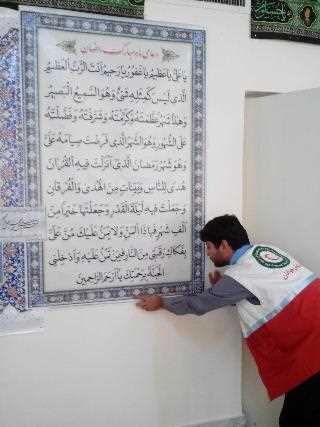 دعای ماه مبارک رمضان
یا عَلِیُّ یا عَظیمُ یا غَفُورُ یا رَحیمُ اَنْتَ الرَّبُّ الْعَظیمُ
الَّذی لَیْسَ کَمِثْلِهِ شَیْءٌ وَهُوَ السَّمیعُ الْبَصیرُ
وَهٰذا شَهْرٌ عَظَّمْتَهُ وَکَرَّمْتَهُ وَشَرَّفْتَهُ وَفَضَّلْتَهُ
عَلَی الشُّهُورِ وَهُوَ الشَّهْرُ الَّذی فَرَضْتَ صِیامَهُ عَلَیَّ
وَهُوَ شَهْرُ رَمَضانَ الَّذی اَنْزَلْتَ فیهِ الْقُرْآنَ
هُدیً لِلنّاسِ وَبَیِّناتٍ مِنَ الْهُدی وَالْفُرْقانِ
وَجَعَلْتَ فیهِ لَیْلَةَ الْقَدْرِ وَجَعَلْتَها خَیْراً مِنْ
اَلْفِ شَهْرٍ فَیا ذَا الْمَنِّ وَلا یُمَنُّ عَلَیْکَ مُنَّ عَلَیَّ
بِفَکاکِ رَقَبَتی مِنَ النّارِ فیمَنْ تَمُنُّ عَلَیْهِ وَاَدْخِلْنِی
الْجَنَّةَ بِرَحْمَتِکَ یا اَرْحَمَ الرّاحِمینَ